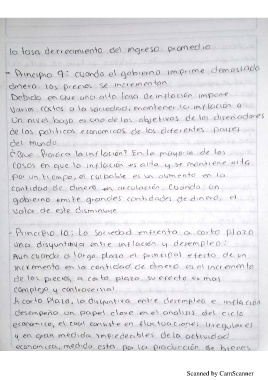 la tasa decrecimiento del ingreso promedio
- Principio 9: cuando el gobierno imprime demasiado
dinero los precios se incrementan.
Debido en que una alta tasa de inflación impone
varios costos a la sociedad, mantener la inflación a
un nivel bajo es uno de los objetivos de los diseñadores
de las politicas economicas de los diferentes países
del mundo.
¿Que causa la inflación? En la mayoria de los
casos en que la inflación es alta y se mantiene alta
por un tiempo, el culpable es un aumento en la
cantidad de dinero en circulación. Cuando un
gobierno emite grandes cantidades de dinero, el
valor de este disminuye
- Principio 10: La sociedad enfrenta a corto plazo
una disyuntiva entre inflación y desempleo:
Aun cuando a largo plazo el principal efecto de un
incremento en la cantidad de dinero es el incremento
de los precios, a corto plazo, su efecto es mas
complejo y controversial.
A corto Plazo, la disyuntiva entre desempleo e inflación
desempeña un papel clave en el analisis del ciclo
economico, el cual consiste en fluctuaciones irregulares
y en gran medida impredecibles de la actividad
economica, medida esta por la producción de bienes
Scanned by CamScanner